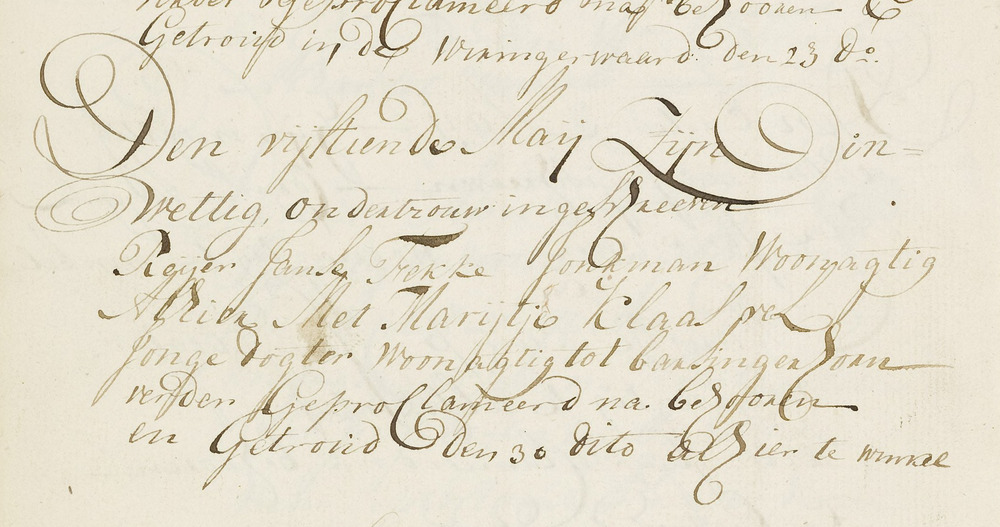 verder Geproclameerd na behooren &
Getroud in de Wiringerwaard den 23 do.
Den vijftiende Maij Zijn in=
Wettig, Ondertrouw ingeschreeven
Reijer Janse Fekke Jonkman Woonagtig
Alhier Met Marijtje Klaas
Jonge dogter woonagtig tot barsingerhorn
verder Geproclameerd na behooren
en Getroud den 30 dito alhier te winkel